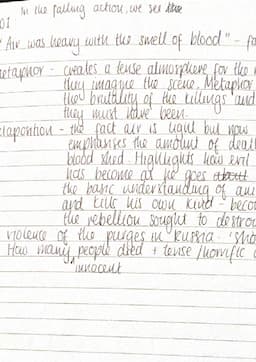 In the falling action, we see the
01
"Air was heavy with the smell of blood" - fa
etaphor - creates a tense atmosphere for the r
they imagine the scene. Metaphor
the brutality of the killings and
they must have been.
xtaposition - the fact air is light but now
emphasises the amount of deat
blood shed. Highlights how evil
has become as he goes about
the basic understanding of ani
and kills his own kind - beco
the rebellion sought to destro
violence of the purges in Russia. 'sho
How many people died + tense/horrific
innocent